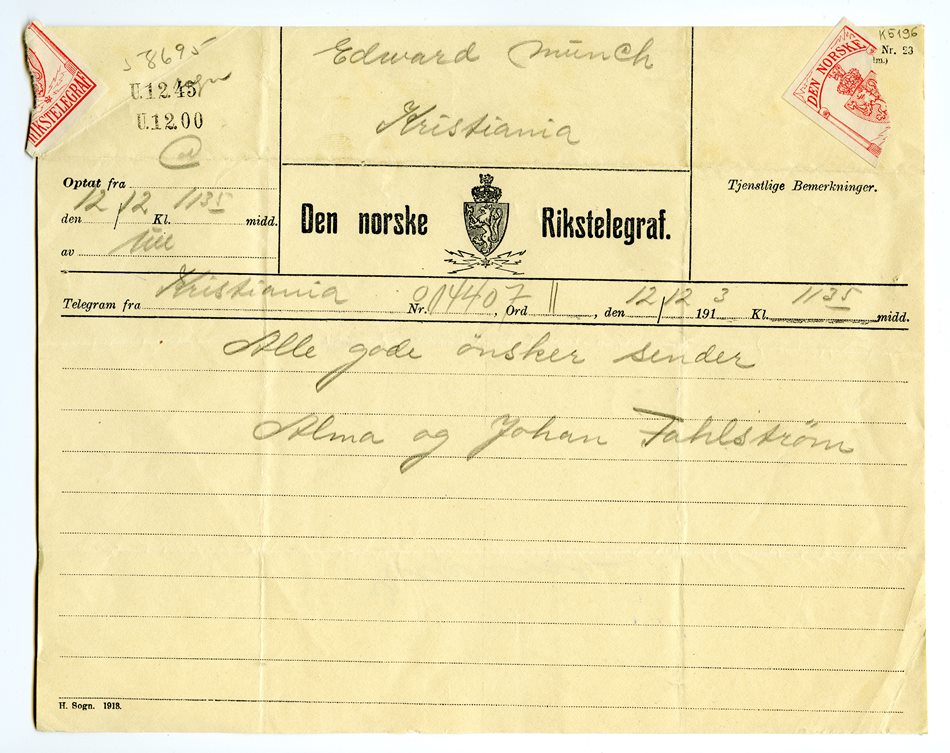 J 8695
U.12.45
U.12.00
RIKSTELEGRAF
Edward Munch
Kristiania
K5196
Nr. 23
DEN NORSKE
Optat fra
den 12/12 Kl. 1135 midd.
av
Den norske Rikstelegraf.
Tjenstlige Bemerkninger.
Telegram fra Kristiania Nr. 04407, Ord 11, den 12/12 1913 Kl. 1135 midd.
Alle gode önsker sender
Alma og Johan Fahlström
H. Sogn. 1913.